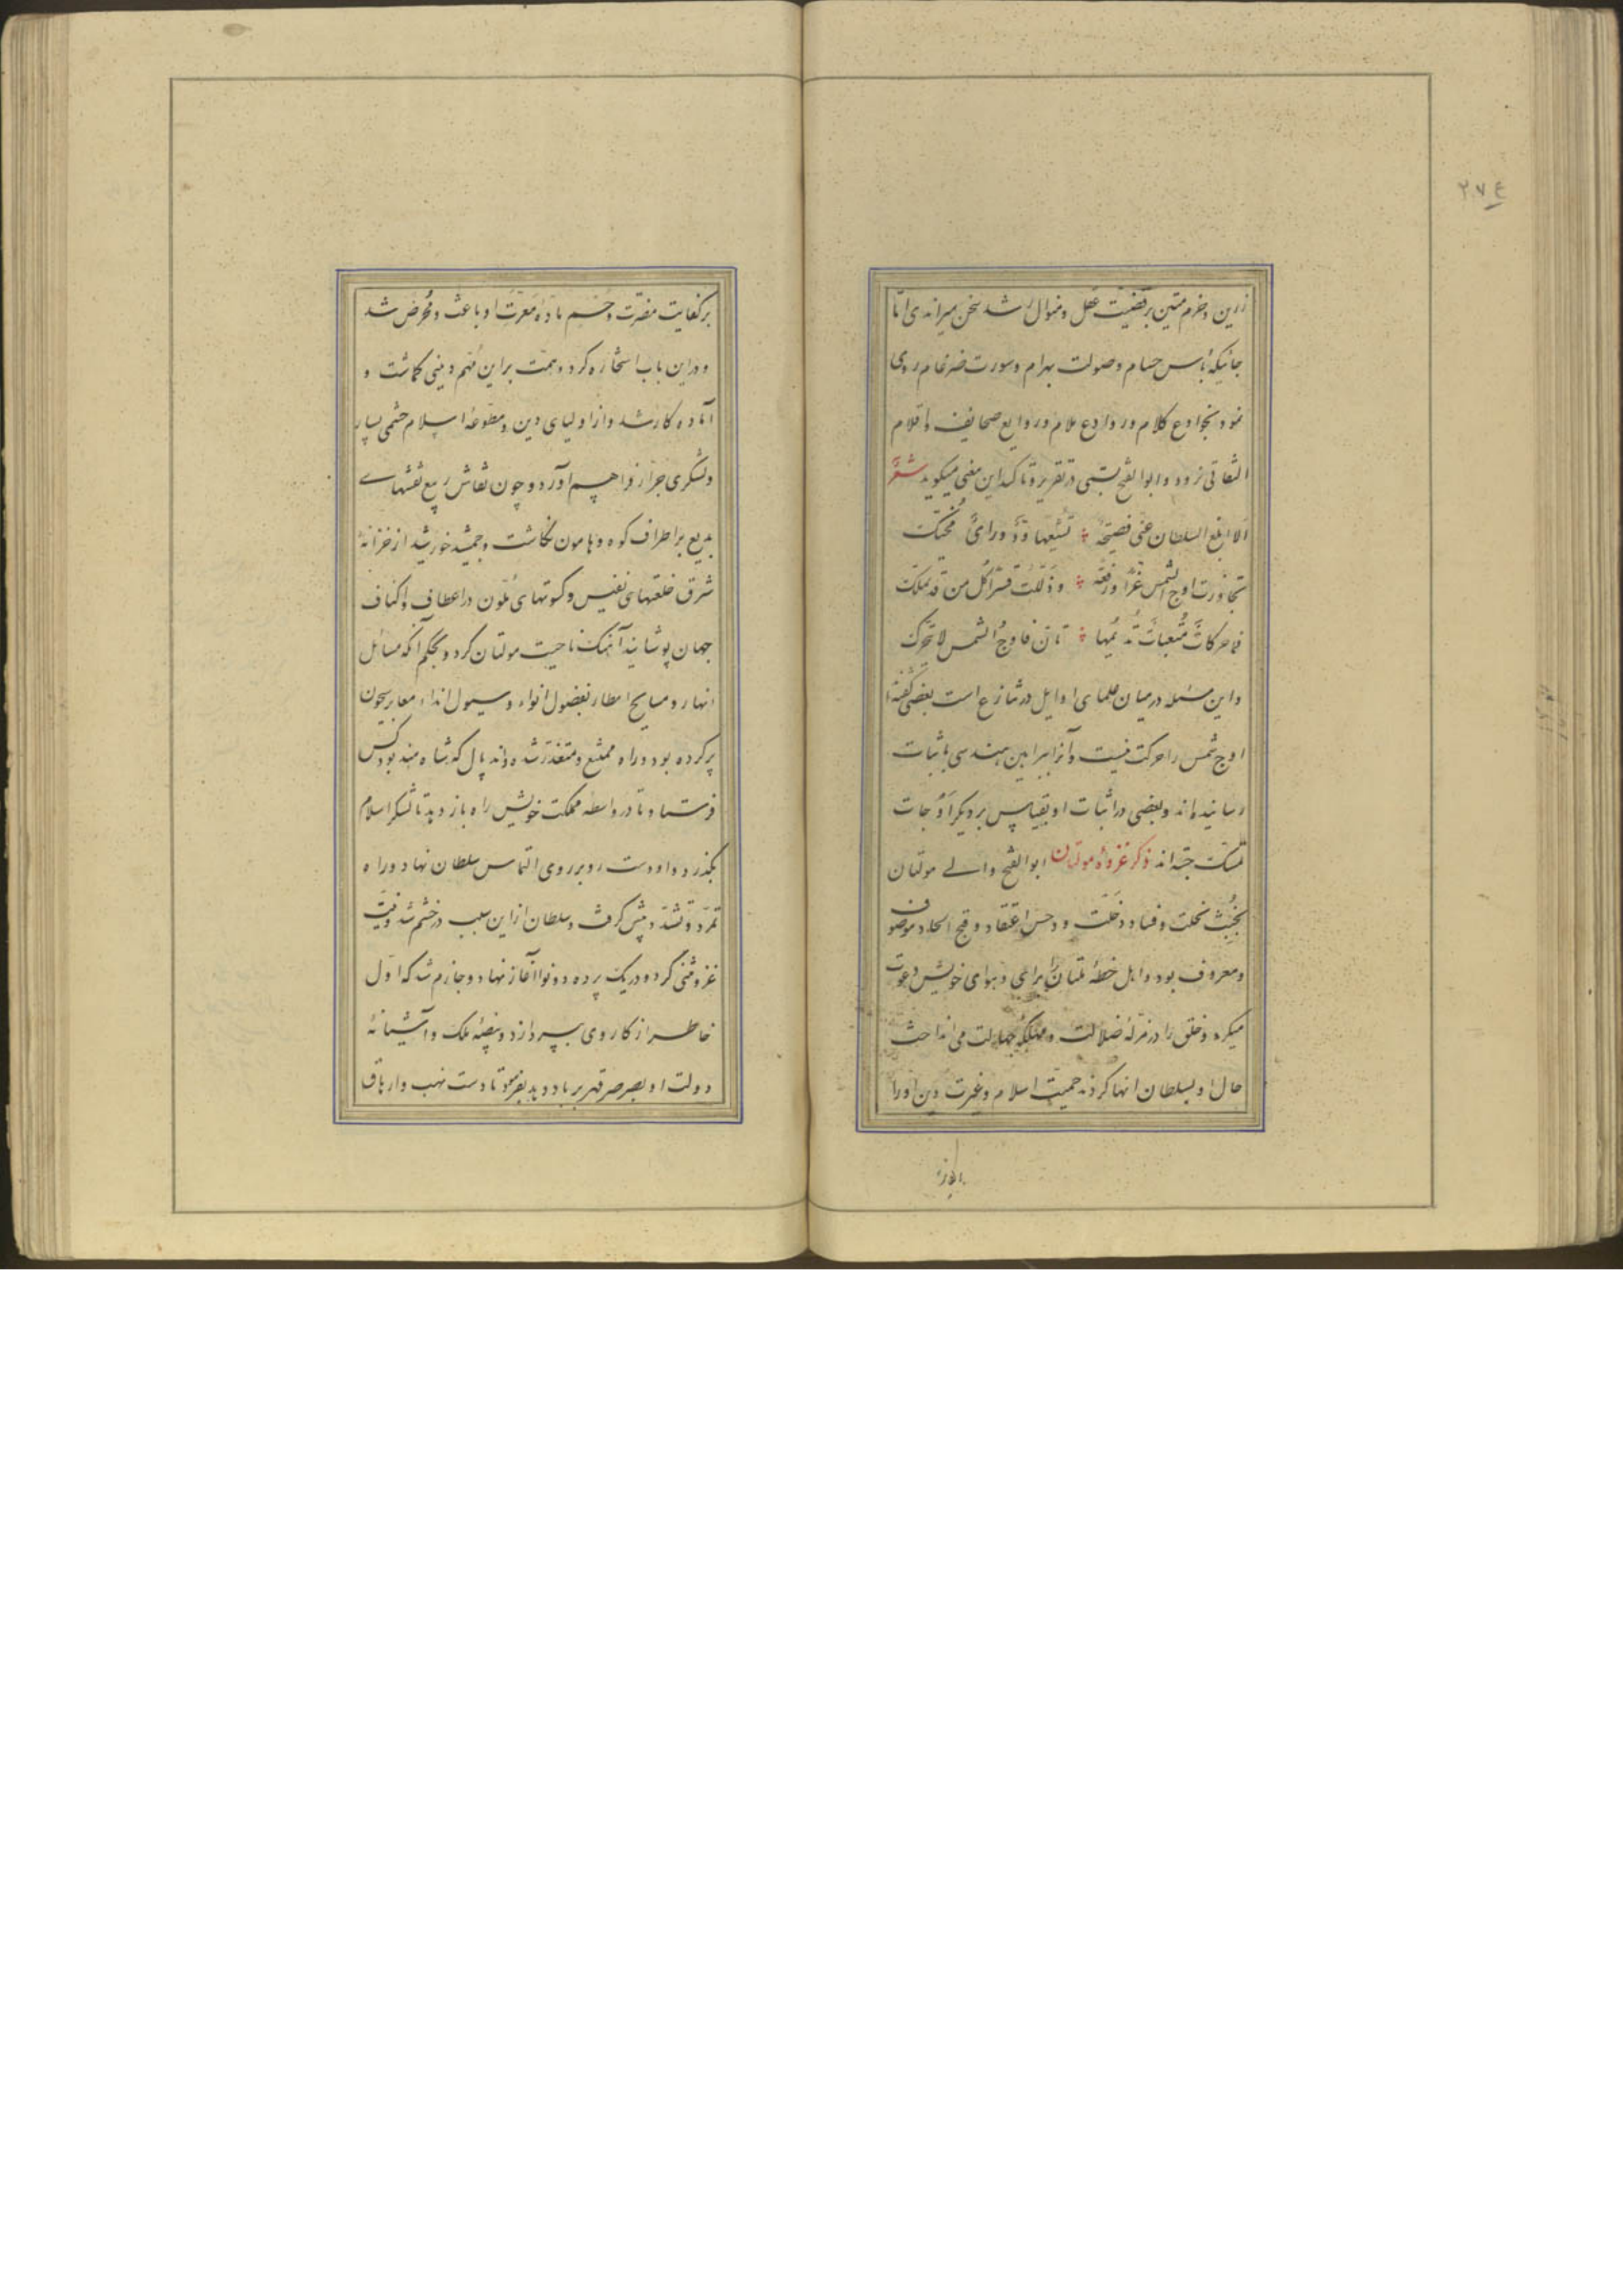 رزین و حزم متین بر قضیّت عقل و منوال رشد سخن میراندی امّا
جائیکه بأس حسام و صولت بهرام و سورت ضرغام روی
نمود بخوادع کلام و روادع ملام و روایع صحایف و اقلام
التفاتی نرود و ابوالفتح بستی در تقریر و تأکید این معنی میکوید شعر
الا ابلغ السلطان عنّی نصیحة تشیّعها ودّ و رایٌ محنّک
تجاوزت اوج الشمس عزّا و رفعه و ذلّلت قسرا کل من قد یملّک
فما حرکات متعبات تدیمها تانّ فاوج الشمس لا تحرّک
و این مسئله در میان علمای اوایل در تنازع است بعضی گفته‌ا
اوج شمس را حرکت نیست و آنرا ببراهین هندسی باثبات
رسانیده‌اند و بعضی در اثبات او بقیاس بر دیکر اوجات
تمسّک جسته‌اند ذکر غزوهٔ مولتان ابوالفتح والی مولتان
بخبث نحلت و فساد دخلت و دحس اعتقاد و قبح الحاد موصوف
و معروف بود و اهل خطهٔ ملتان را برای و هوای خویش دعوت
میکرد و خلق را در مزلهٔ ضلالت و مهلکهٔ جهالت می انداخت
حال او بسلطان انها کردند حمیّت اسلام و غیرت دین او را
بر کفایت مضرّت و حسم مادهٔ معرّت او باعث و محرّض شد
و در این باب استخاره کرد و همّت بر این مهم دینی گماشت و
آماده کار شد و از اولیای دین و مطوعهٔ اسلام حشمی بسیار
و لشکری جرار فراهم آورد و چون نقاش ربیع نقشهای
بدیع بر اطراف کوه و هامون نگاشت و جمشید خورشید از خزانهٔ
شرق خلعتهای نفیس و کسوتهای ملّون در اعطاف و اکناف
جهان پوشانید آهنک ناحیت مولتان کرد و بحکم آنکه مسائل
انهار و مسایح امطار بفضول انواء و سیول انداء معابر سیحون
پر کرده بود و راه ممتنع و متعذر شده و اند پال که شاه هند بود کس
فرستاد تا در واسطه مملکت خویش راه باز دهد تا لشکر اسلام
بکذرد و او دست رد بر روی التماس سلطان نهاد و راه
تمرّد و تشدّد پیش کرفت و سلطان از این سبب در خشم شد و نیّت
غزو مثنی کرد و در یک پرده دو نوا آغاز نهاد و جازم شد که اوّل
خاطر از کار وی بپردازد و بیضهٔ ملک و آشیانهٔ
دولت او بصرصر قهر بر باد دهد بفرمود تا دست نهب و ارهاق